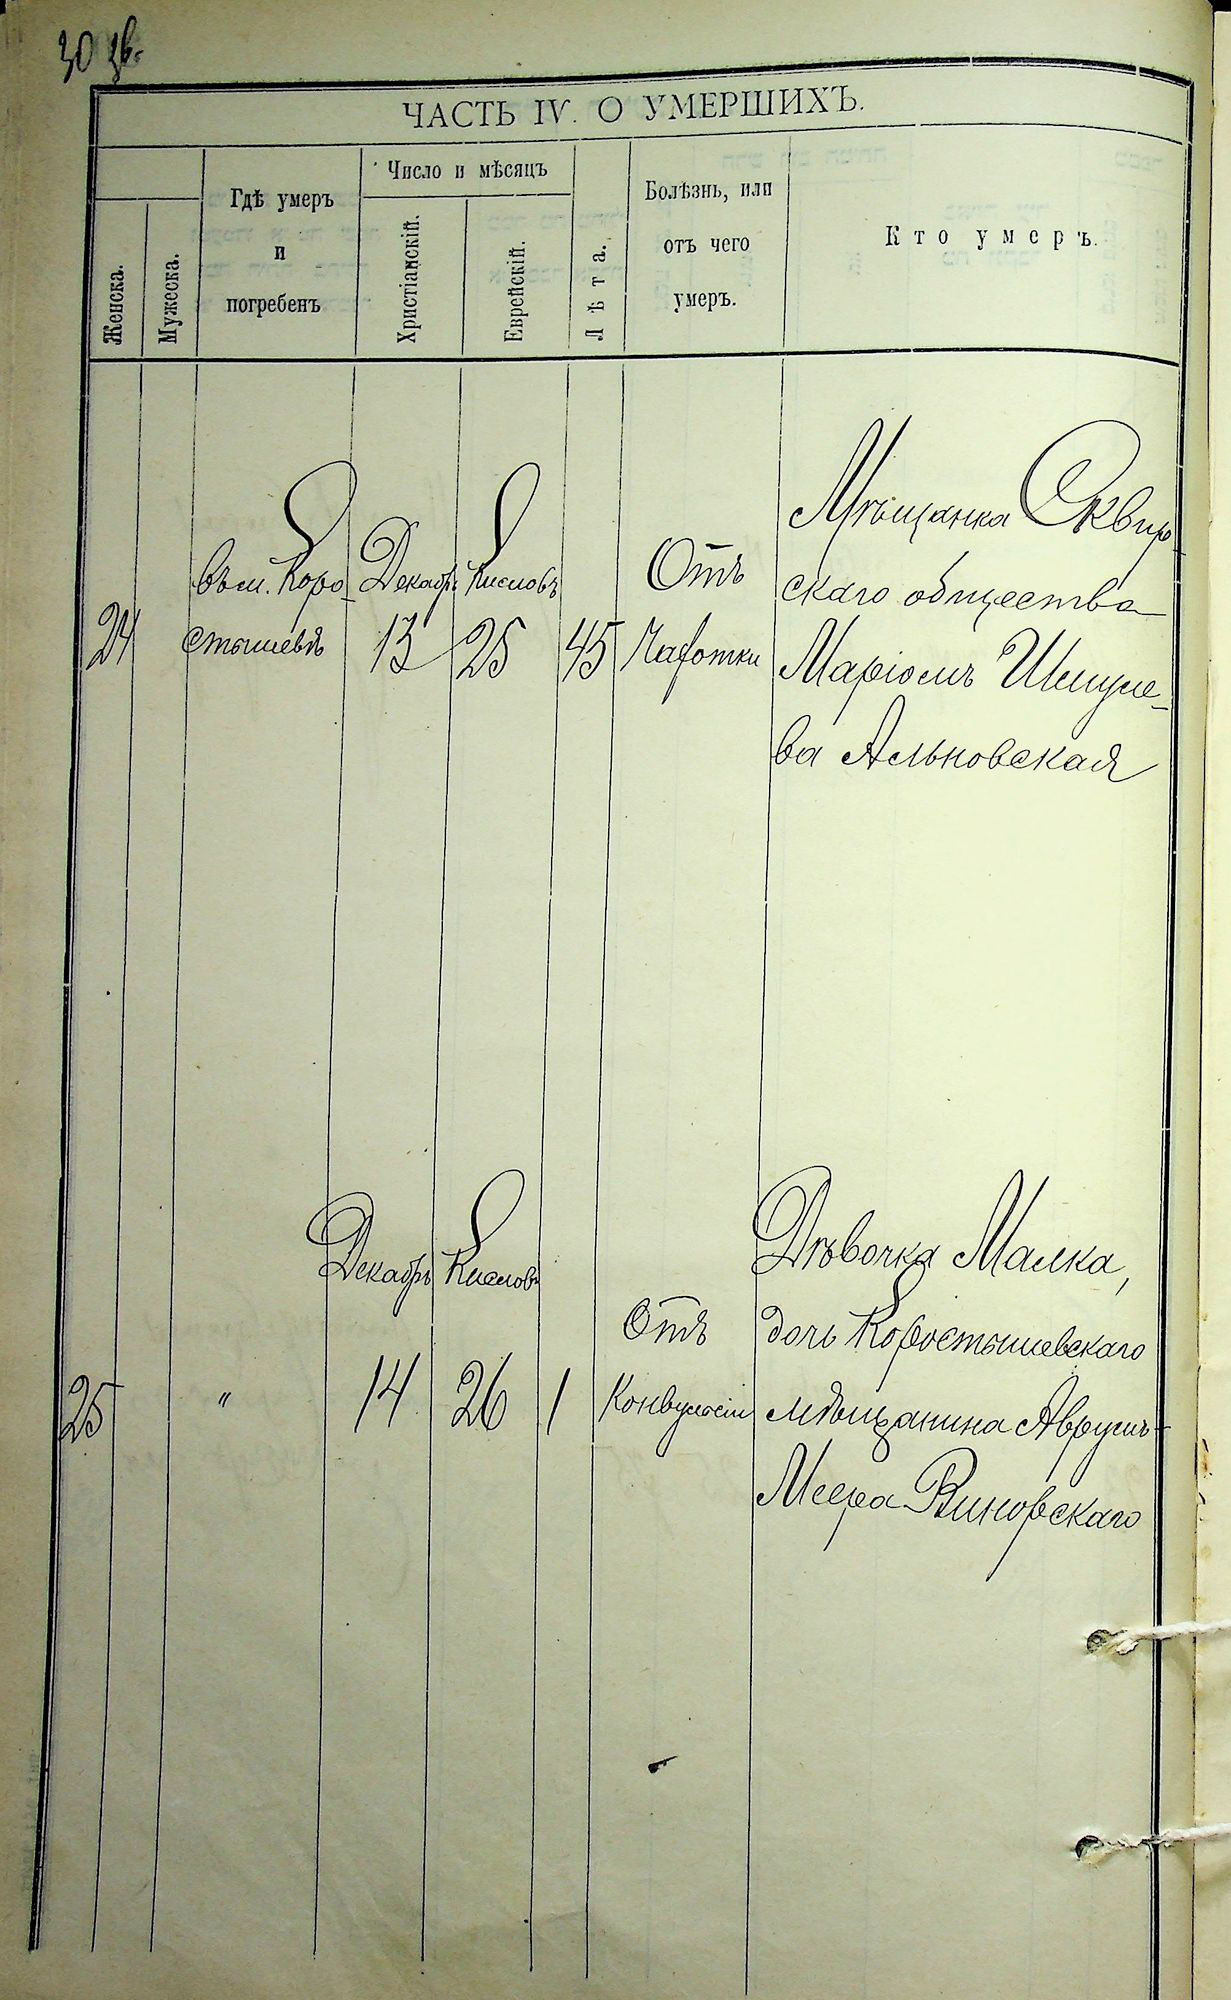 30 зв.
ЧАСТЬ IV. О УМЕРШИХЪ.
Женска.
Мужеска.
Гдѣ умеръ
и
погребенъ
Число и мѣсяцъ
Христіанскій.
Еврейскій.
Лѣта.
Болѣзнь, или
отъ чего
умеръ.
Кто умеръ.
24
въ м. Коро-
стышевѣ
Декабрь
13
Кислевъ
25
45
Отъ
Чахотки
Мѣщанка Сквир-
скаго общества
Маріємъ Шмуле-
ва Альновская
25
"
Декабрь
14
Кислевъ
26
1
Отъ
Конвульсіи
Дѣвочка Малка,
дочь Коростышевскаго
мѣщанина Аврумъ-
Меера Виновскаго